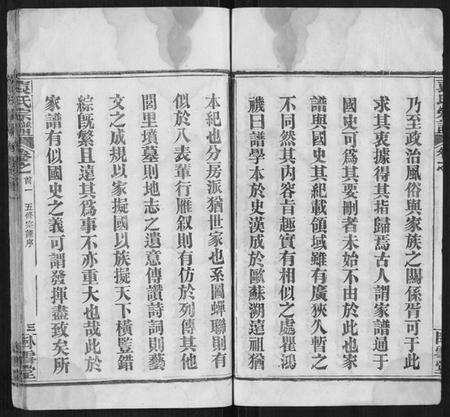 乃至政治風俗與家族之關係皆可于此
求其衷據得其指歸焉古人謂家譜通于
國史可爲其要刪者未始不由於此也家
譜與國史其紀載領域雖有廣狹久暫之
不同然其内容旨趣實有相似之處瞿鴻
禨曰譜學本於史漢成於歐蘇溯遠祖猶
本紀也分房派猶世家也系圖蟬聯則有
似於八表單行雁叙則有仿於列傳其他
閭里墳墓則地志之遺意傳讚詩詞則藝
文之成規以家擬國以族擬天下橫豎錯
綜旣繁且遠其爲事不亦重大也哉此於
家譜有似國史之義可謂發揮盡致矣所
袁氏宗譜
卷之首
五修宗譜序
三
臥雪堂